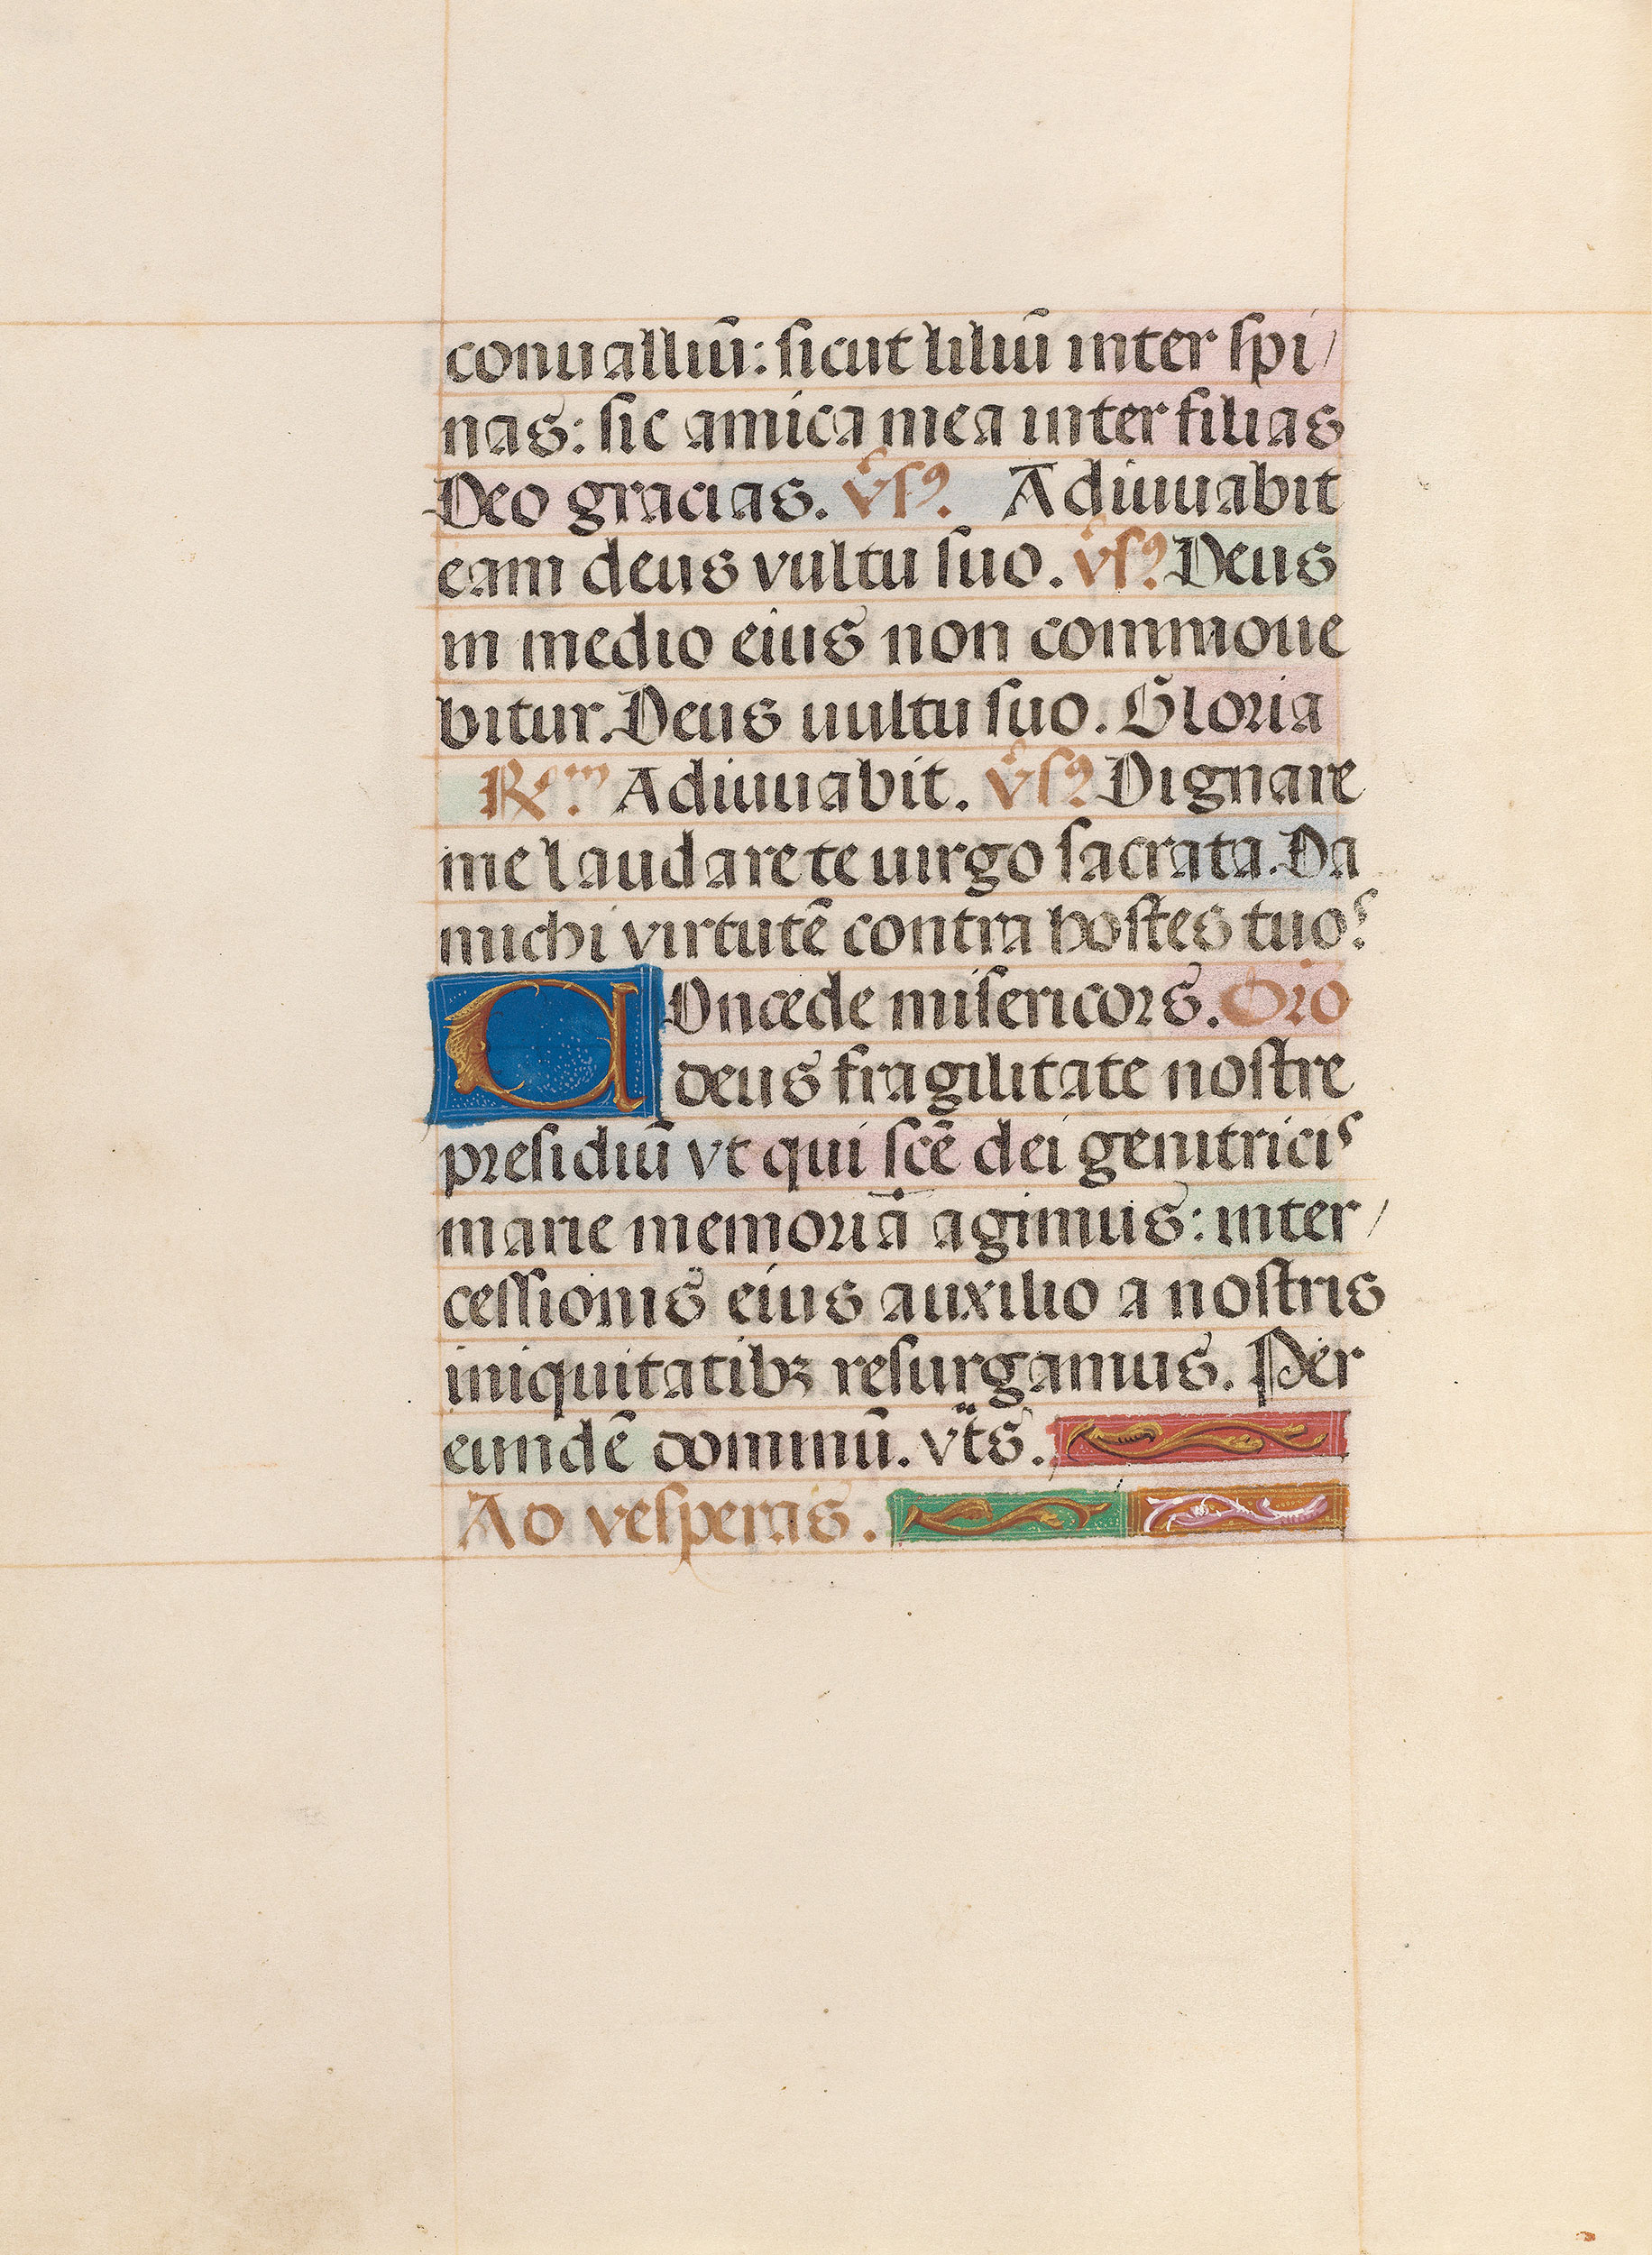 conualliū: sicut liliū inter spi/
nas: sic amica mea inter filias
Deo gracias. v̄sꝰ. Adiuuabit
eam deus vultu suo. v̄sꝰ. Deus
in medio eius non commoue
bitur. Deus uultu suo. Gloria
Rm̄. Adiuuabit. v̄sꝰ. Dignare
me laudare te uirgo sacrata. Da
michi virtutē contra hostes tuos.
Concede misericors. Oro
deus fragilitate nostre
presidiū vt qui scē dei genitricis
marie memoriā agimus: inter/
cessionis eius auxilio a nostris
iniquitatibꝫ resurgamus. Per
eundē dominū. vts̄.
Ad vesperas.